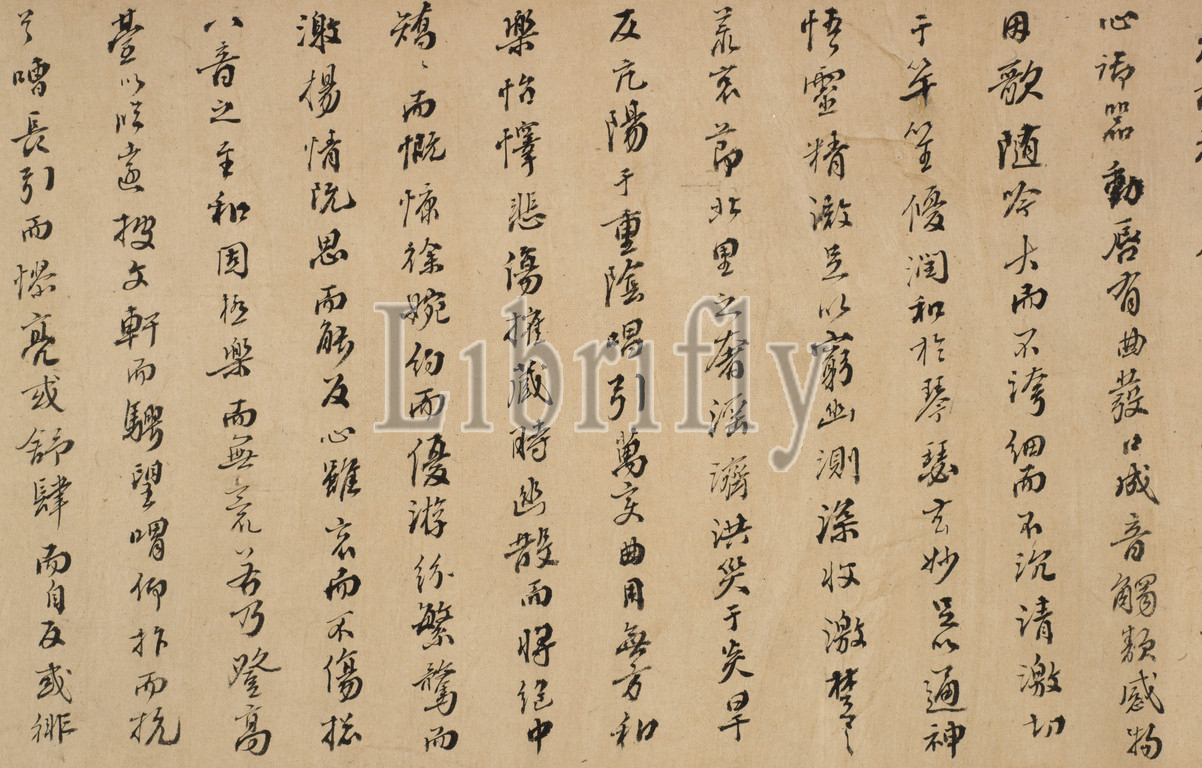 心御器動唇有曲發口成音觸類感物
因歌隨吟大而不誇細而不沉清激切
于竽笙優潤和於琴瑟玄妙足以通神
悟靈精激足以窮幽測深收激楚之
哀荒節北里之奢淫濟洪災于炎旱
反亢陽于重陰唱引萬變曲用無方和
樂怡懌悲傷摧藏時幽散而將絕中
矯〻而慨慷徐婉約而優游紛繁騖而
激揚情既思而能反心雖哀而不傷總
八音之至和固極樂而無荒若乃登高
臺以臨遠披文軒而騁望喟仰抃而抗
首嘈長引而憀亮或舒肆而自反或徘
Librifly